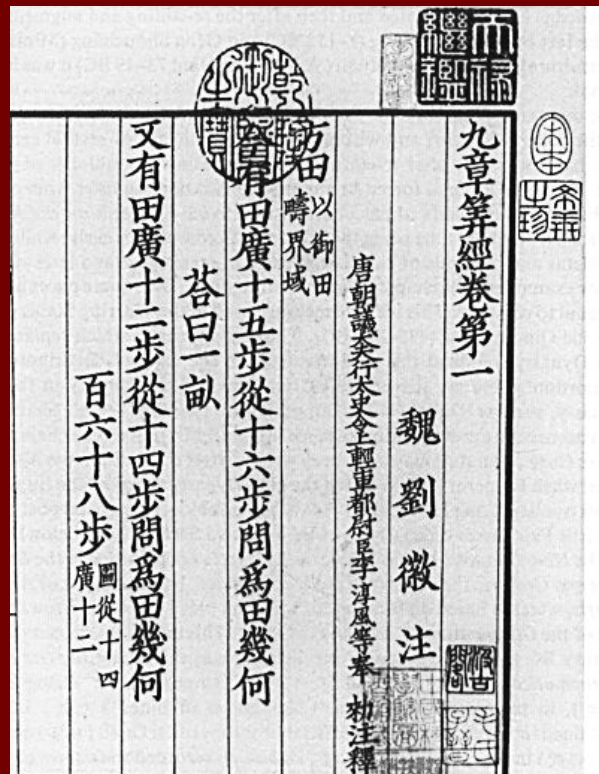 天祿繼鑑
宋本
希世之珍
乾隆御覽之寶
九章筭經卷第一
魏劉徽注
唐朝議大夫行太史令上輕車都尉臣李淳風等奉 勑注釋
方田以御田疇界域
今有田廣十五步從十六步問爲田幾何
荅曰一畝
又有田廣十二步從十四步問爲田幾何
百六十八步圖從十四廣十二
汲古閣